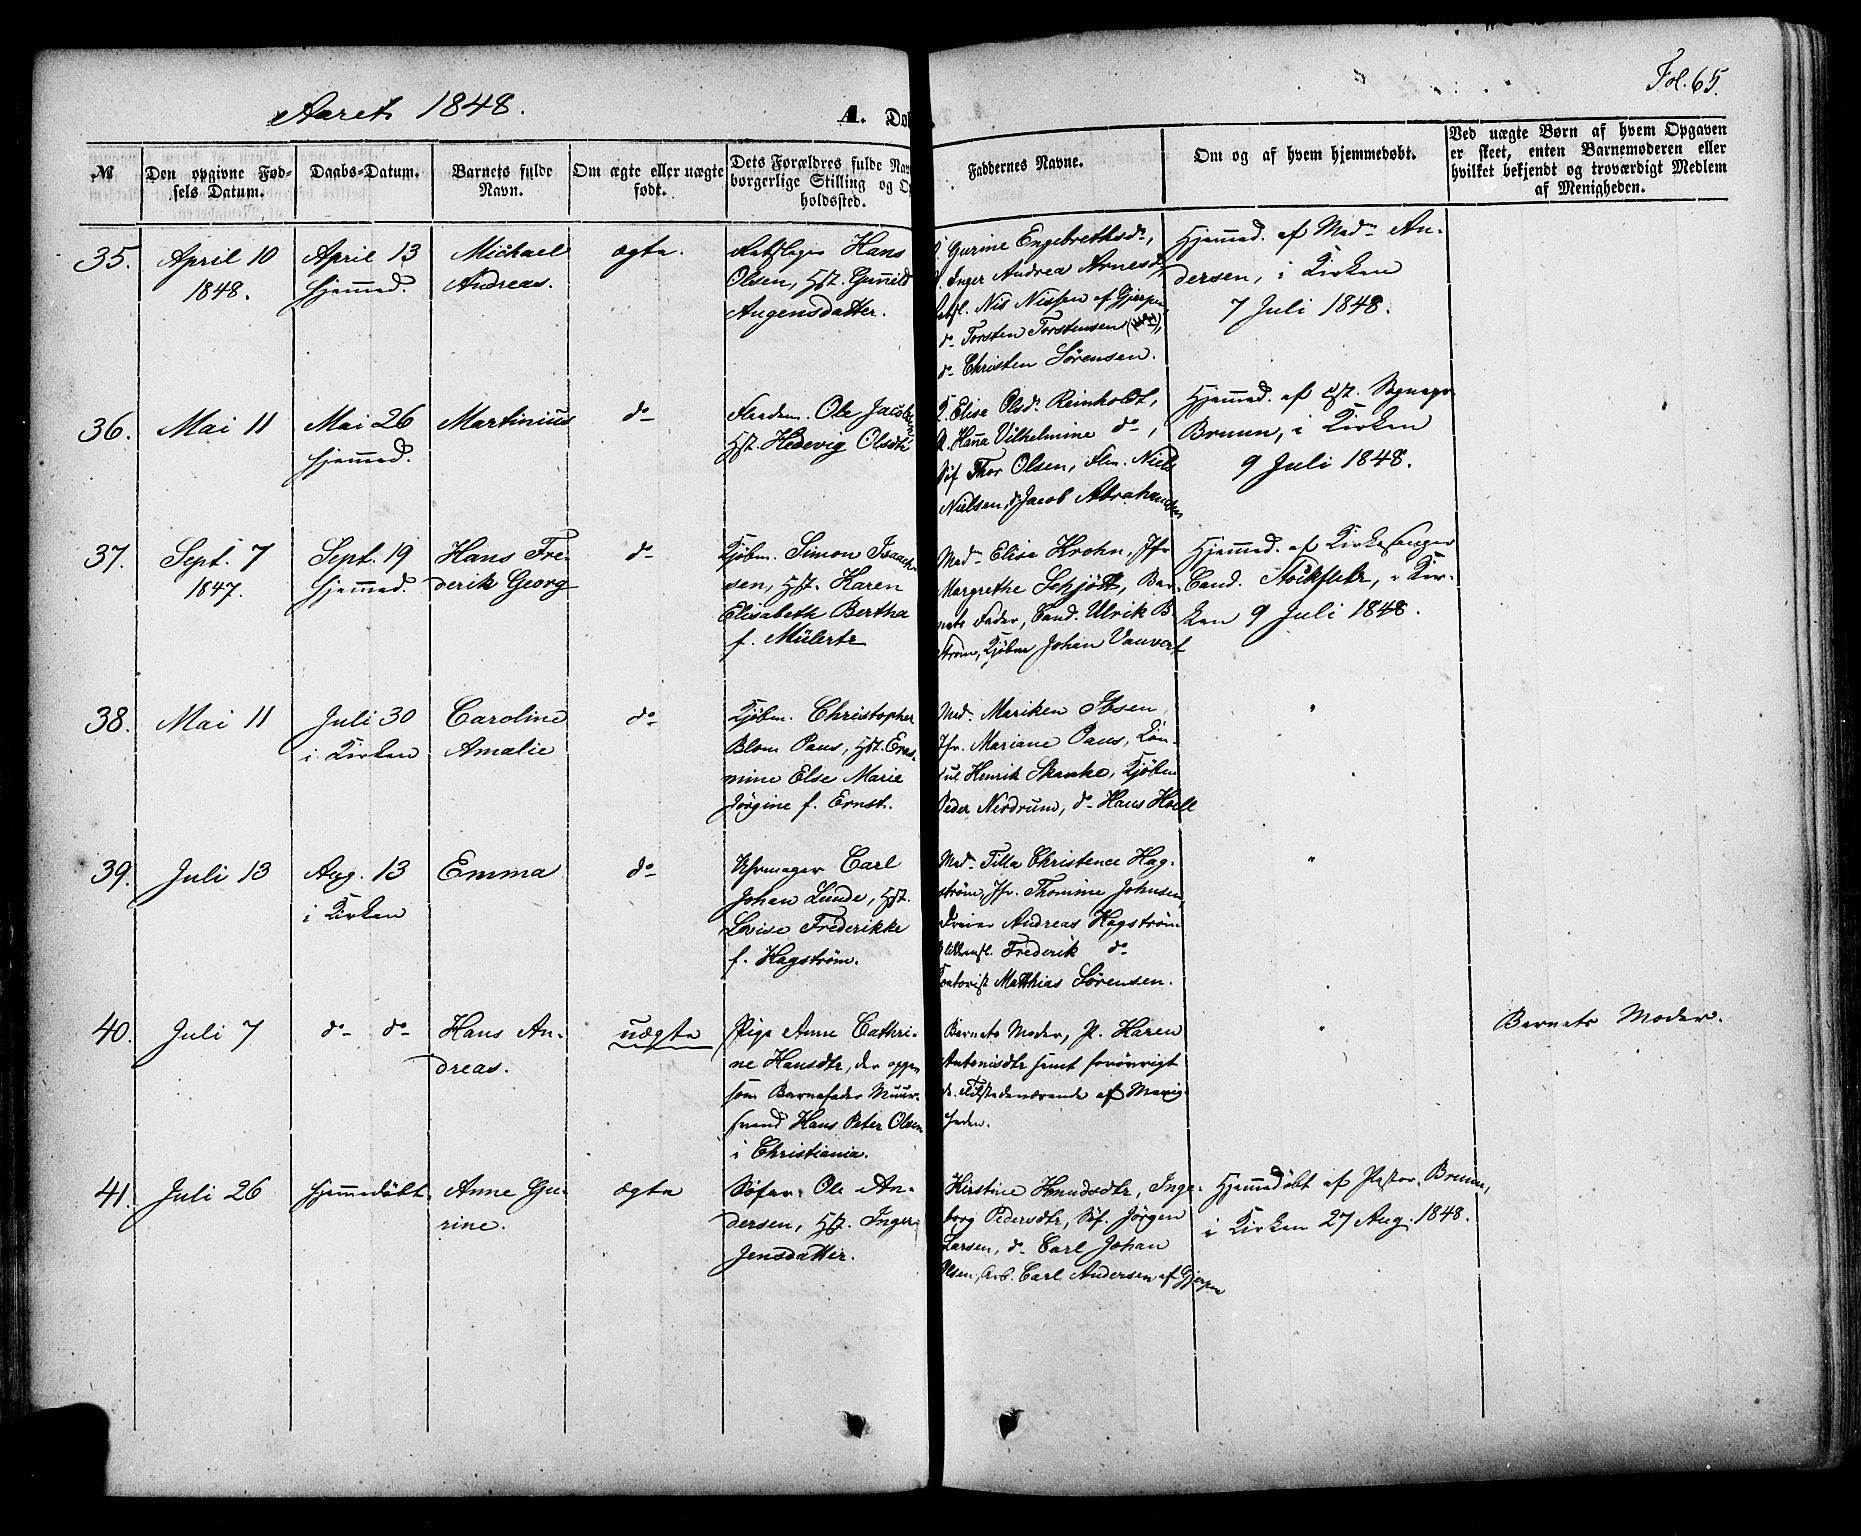 Aaret 1848.
A. Do
Fol. 65.
№
Den opgivne Fød-
sels Datum.
Daabs-Datum.
Barnets fulde
Navn.
Om ægte eller uægte
født.
Dets Forældres fulde Nav
borgerlige Stilling og O
holdssted.
Faddernes Navne.
Om og af hvem hjemmedøbt.
Ved uægte Børn af hvem Opgaven
er skeet, enten Barnemoderen eller
hvilket bekjendt og troværdigt Medlem
af Menigheden.
35.
April 10
1848.
April 13
hjemmed.
Michael
Andreas.
ægte.
Hans
Olsen, Hst. Gunild
Augensdatter.
Gurine Engebrethsd.,
Inger Andrea Arnesd,
Nis Nissen af Gjerpen
do Torsten Torstensen
do Christen Sørensen.
Hjemmed. af Mad. An-
dersen, i Kirken
7 Juli 1848.
36.
Mai 11
Mai 26
hjemmed.
Martinius
do
Ole Jacobsen
Hst. Hedevig Olsdtr
Elise Olsd. Reinholdt,
Hanna Vilhelmine do,
Søf Thor Olsen, Niels
Nielsen, do Jacob Abrahamsen
Hjemmed. af cst. Sognepr
Bruun, i Kirken
9 Juli 1848.
37.
Sept. 7
1847.
Sept. 19
hjemmed.
Hans Fre-
derik Georg
do
Kjøbm. Simon Isaach-
sen, Hst. Karen
Elisabeth Bertha
f. Mülertz
Mad. Elise Krohn, Jfr
Margrethe Schjøtt, Bar-
nets Fader, Cand. Ulrik B
strøm, Kjøbm Johan Vauvert
Hjemmed. af Kirkesanger
Cand. Stockfleth, i Kir-
ken 9 Juli 1848.
38.
Mai 11
Juli 30
i Kirken
Caroline
Amalie
do
Kjøbm. Christopher
Blom Paus, Hst. Eras-
mine Else Marie
Jørgine f. Ernst.
Mad. Mariken Ibsen,
Jfr. Mariane Paus, Kon-
sul Henrik Skanke, Kjøbm
Peder Nerdrum, do Hans Hoell
"
39.
Juli 13
Aug. 13
i Kirken
Emma
do
Uhrmager Carl
Johan Lunde, Hst.
Lovise Frederikke
f. Hagstrøm.
Mad. Tilla Christence Hag-
strøm, Jfr. Thomine Johnsen,
Dreier Andreas Hagstrøm
Frederik do
Kontorist Matthias Sørensen.
"
40.
Juli 7
do do
Hans An-
dreas.
uægte
Pige Anne Cathri-
ne Hansdtr, der opgav
som Barnefader Muur-
svend Hans Peter Olsen
i Christiania.
Barnets Moder, P. Karen
Antonisdtr samt forøvrigt
de Tilstedeværende af Menig-
heden.
"
Barnets Moder.
41.
Juli 26
hjemmedøbt
Anne Gu-
rine.
ægte
Søfar. Ole An-
dersen, Hst. Inger
Jensdatter.
Kirstine Knudsdtr, Inge-
borg Pedersdtr, Søf. Jørgen
Larsen, do Carl Johan
Olsen, Arb. Carl Andersen af Gjerpen
Hjemmedøbt af Pastor Bruun,
i Kirken 27 Aug. 1848.